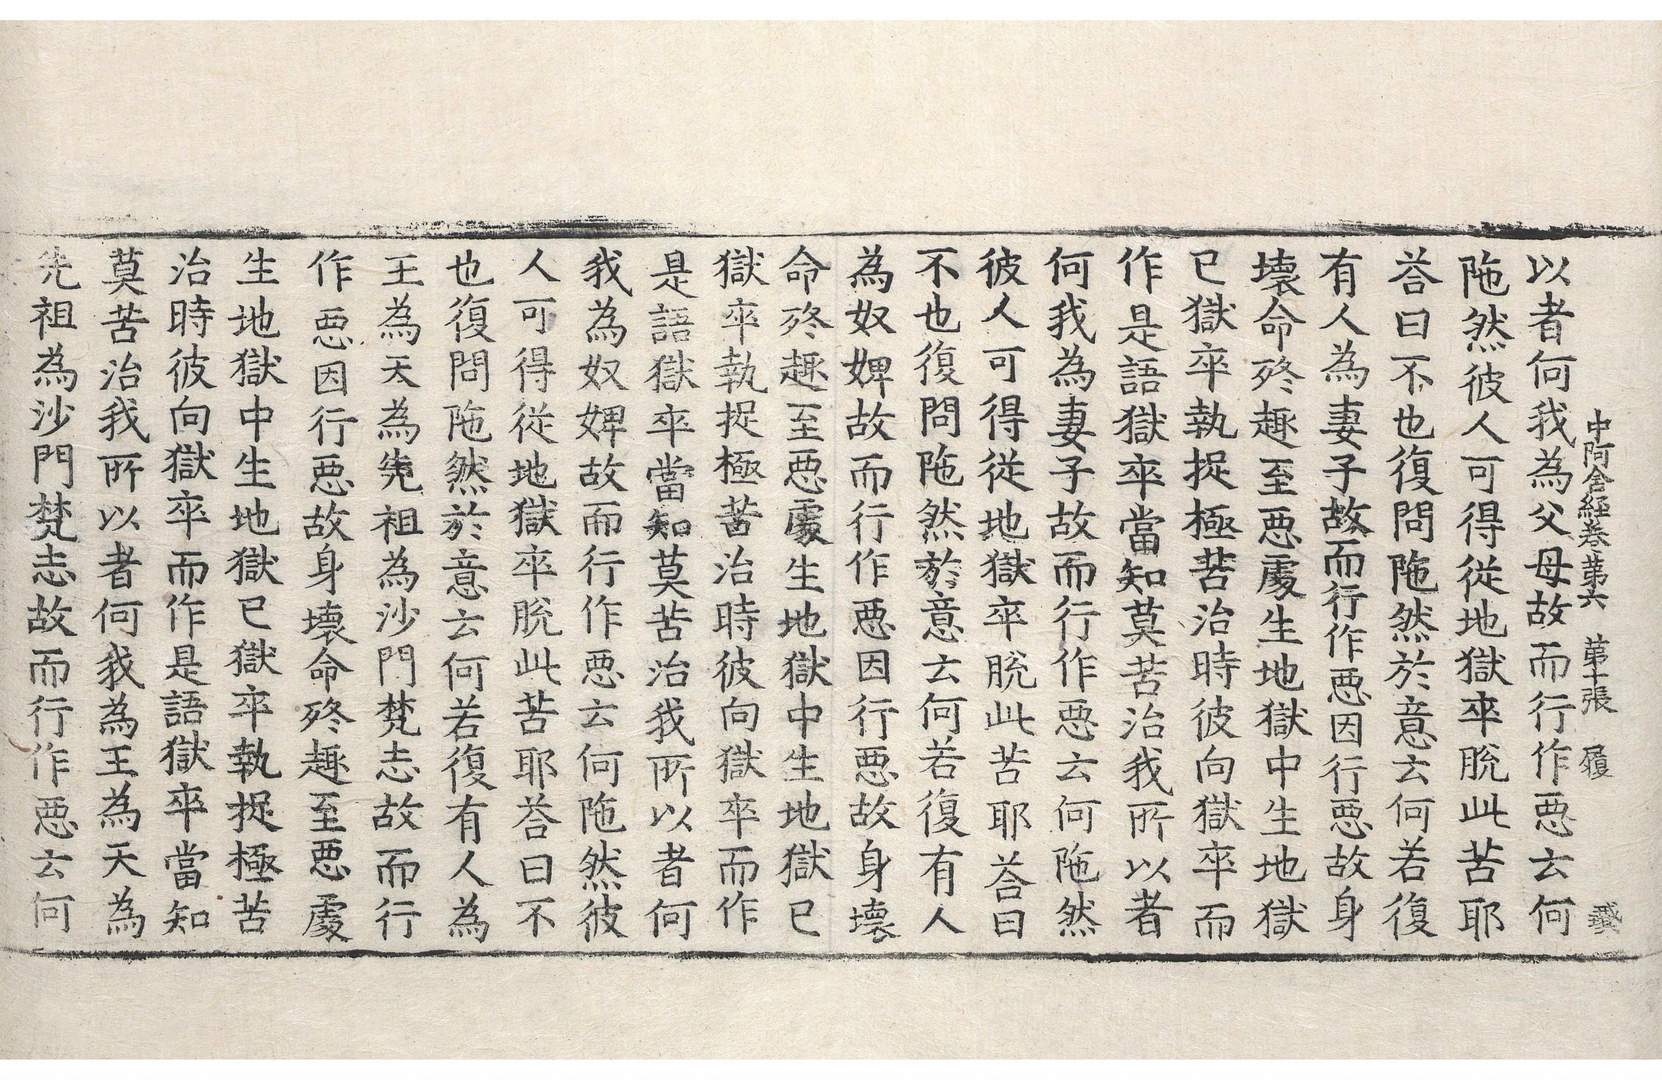 中阿含經卷第六 第十張 履
以者何我為父母故而行作惡云何
陁然彼人可得從地獄卒脫此苦耶
荅曰不也復問陁然於意云何若復
有人為妻子故而行作惡因行惡故身
壞命終趣至惡處生地獄中生地獄
已獄卒執捉極苦治時彼向獄卒而
作是語獄卒當知莫苦治我所以者
何我為妻子故而行作惡云何陁然
彼人可得從地獄卒脫此苦耶荅曰
不也復問陁然於意云何若復有人
為奴婢故而行作惡因行惡故身壞
命終趣至惡處生地獄中生地獄已
獄卒執捉極苦治時彼向獄卒而作
是語獄卒當知莫苦治我所以者何
我為奴婢故而行作惡云何陁然彼
人可得從地獄卒脫此苦耶荅曰不
也復問陁然於意云何若復有人為
王為天為先祖為沙門梵志故而行
作惡因行惡故身壞命終趣至惡處
生地獄中生地獄已獄卒執捉極苦
治時彼向獄卒而作是語獄卒當知
莫苦治我所以者何我為王為天為
先祖為沙門梵志故而行作惡云何